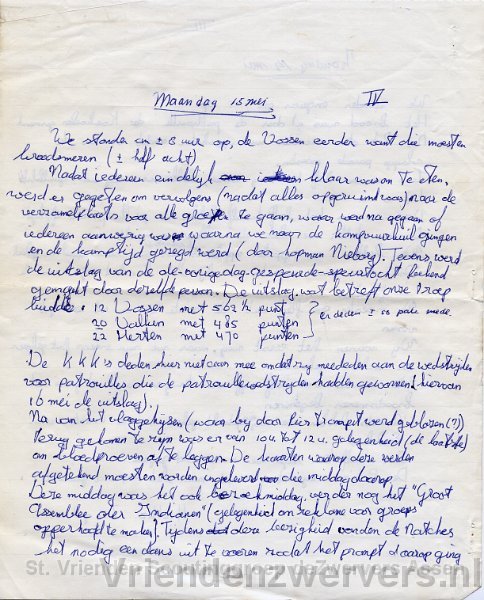 Maandag 15 mei IV
We stonden om ± 8 uur op, de Vossen eerder want die moesten
broodsmeren (± half acht)
Nadat iedereen eindelijk klaar was om te eten,
werd er gegeten om vervolgens (nadat alles opgeruimd was) naar de
verzamelplaats voor alle groepen te gaan, waar werd nagegaan of
iedereen aanwezig was waarna we naar de kampvuurkuil gingen
en de kamptijd geregd werd (door hopman Nieborg). Tevens werd
de uitslag van de de-vorige-dag-gespeelde-speurtocht bekend
gemaakt door dezelfde persoon. De uitslag, wat betreft onze troep
luidde: 12 Vossen met 502½ punt
20 Valken met 485 punten
22 Herten met 470 punten
er deden ± 50 patr. mede
De KKK's deden hier niet aan mee omdat zij meededen aan de wedstrijden
voor patrouilles die de patrouillewedstrijden hadden gewonnen (hiervan
16 mei de uitslag).
Na van het vlaggehijsen (waar bij door hier trompet werd geblazen (?))
terug gekomen te zijn was er van 10 u. tot 12 u. gelegenheid (de laatste)
om bloedproeven af te leggen. De kaarten waarop deze werden
afgetekend moesten worden ingeleverd die middag daarop.
Deze middag was het ook bezoekmiddag, verder nog het "Groot
Assemblee der Indianen" (gelegenheid om reklame voor groeps
opperhoofd te maken). Tijdens deze bezigheid vonden de Natches
het nodig een dans uit te voeren zodat het prompt daarop ging
St. Vrienden Scoutinggroep deZwervers Assen
Vriendenzwervers.nl